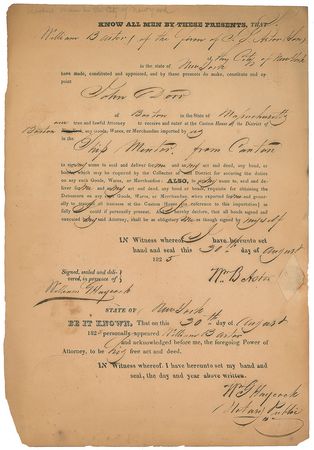 KNOW ALL MEN BY THESE PRESENTS, THAT I
William B Astor (of the firm of
of the City of New York
in the state of New York
have made, constituted and appointed, and by these presents do make, constitute and appoint
John Dorr
of Boston in the State of Massachusetts
true and lawful Attorney to receive and enter at the Custom House of the District of
Boston any goods, Wares, or Merchandise imported by
Ship Mentor from Canton
to sign, seal and deliver for me and my act and deed, any bond, or
bonds which may be required by the Collector of said District for securing the duties
on any such Goods, Wares, or Merchandise; ALSO, to sign, seal and deliver
for me and my act and deed, any bond or bonds, requisite for obtaining the
Debenture on any Goods, Wares, or Merchandise, when exported and generally
to transact all business at the Custom House in reference to this importation as
fully could if personally present. hereby declare, that all bonds signed and
executed by said Attorney, shall be as obligatory as though signed by myself
IN Witness whereof, I have hereunto set
hand and seal this 30th day of August
1825
Signed, sealed and delivered,
in presence of
William Haycock
Wm B Astor
STATE OF New York
BE IT KNOWN, That on this 30th day of August
1825 personally appeared William B Astor
and acknowledged before me, the foregoing Power of
Attorney, to be his free act and deed.
In Witness whereof, I have hereunto set my hand and
seal, the day and year above written.
Haycock
Notary Public